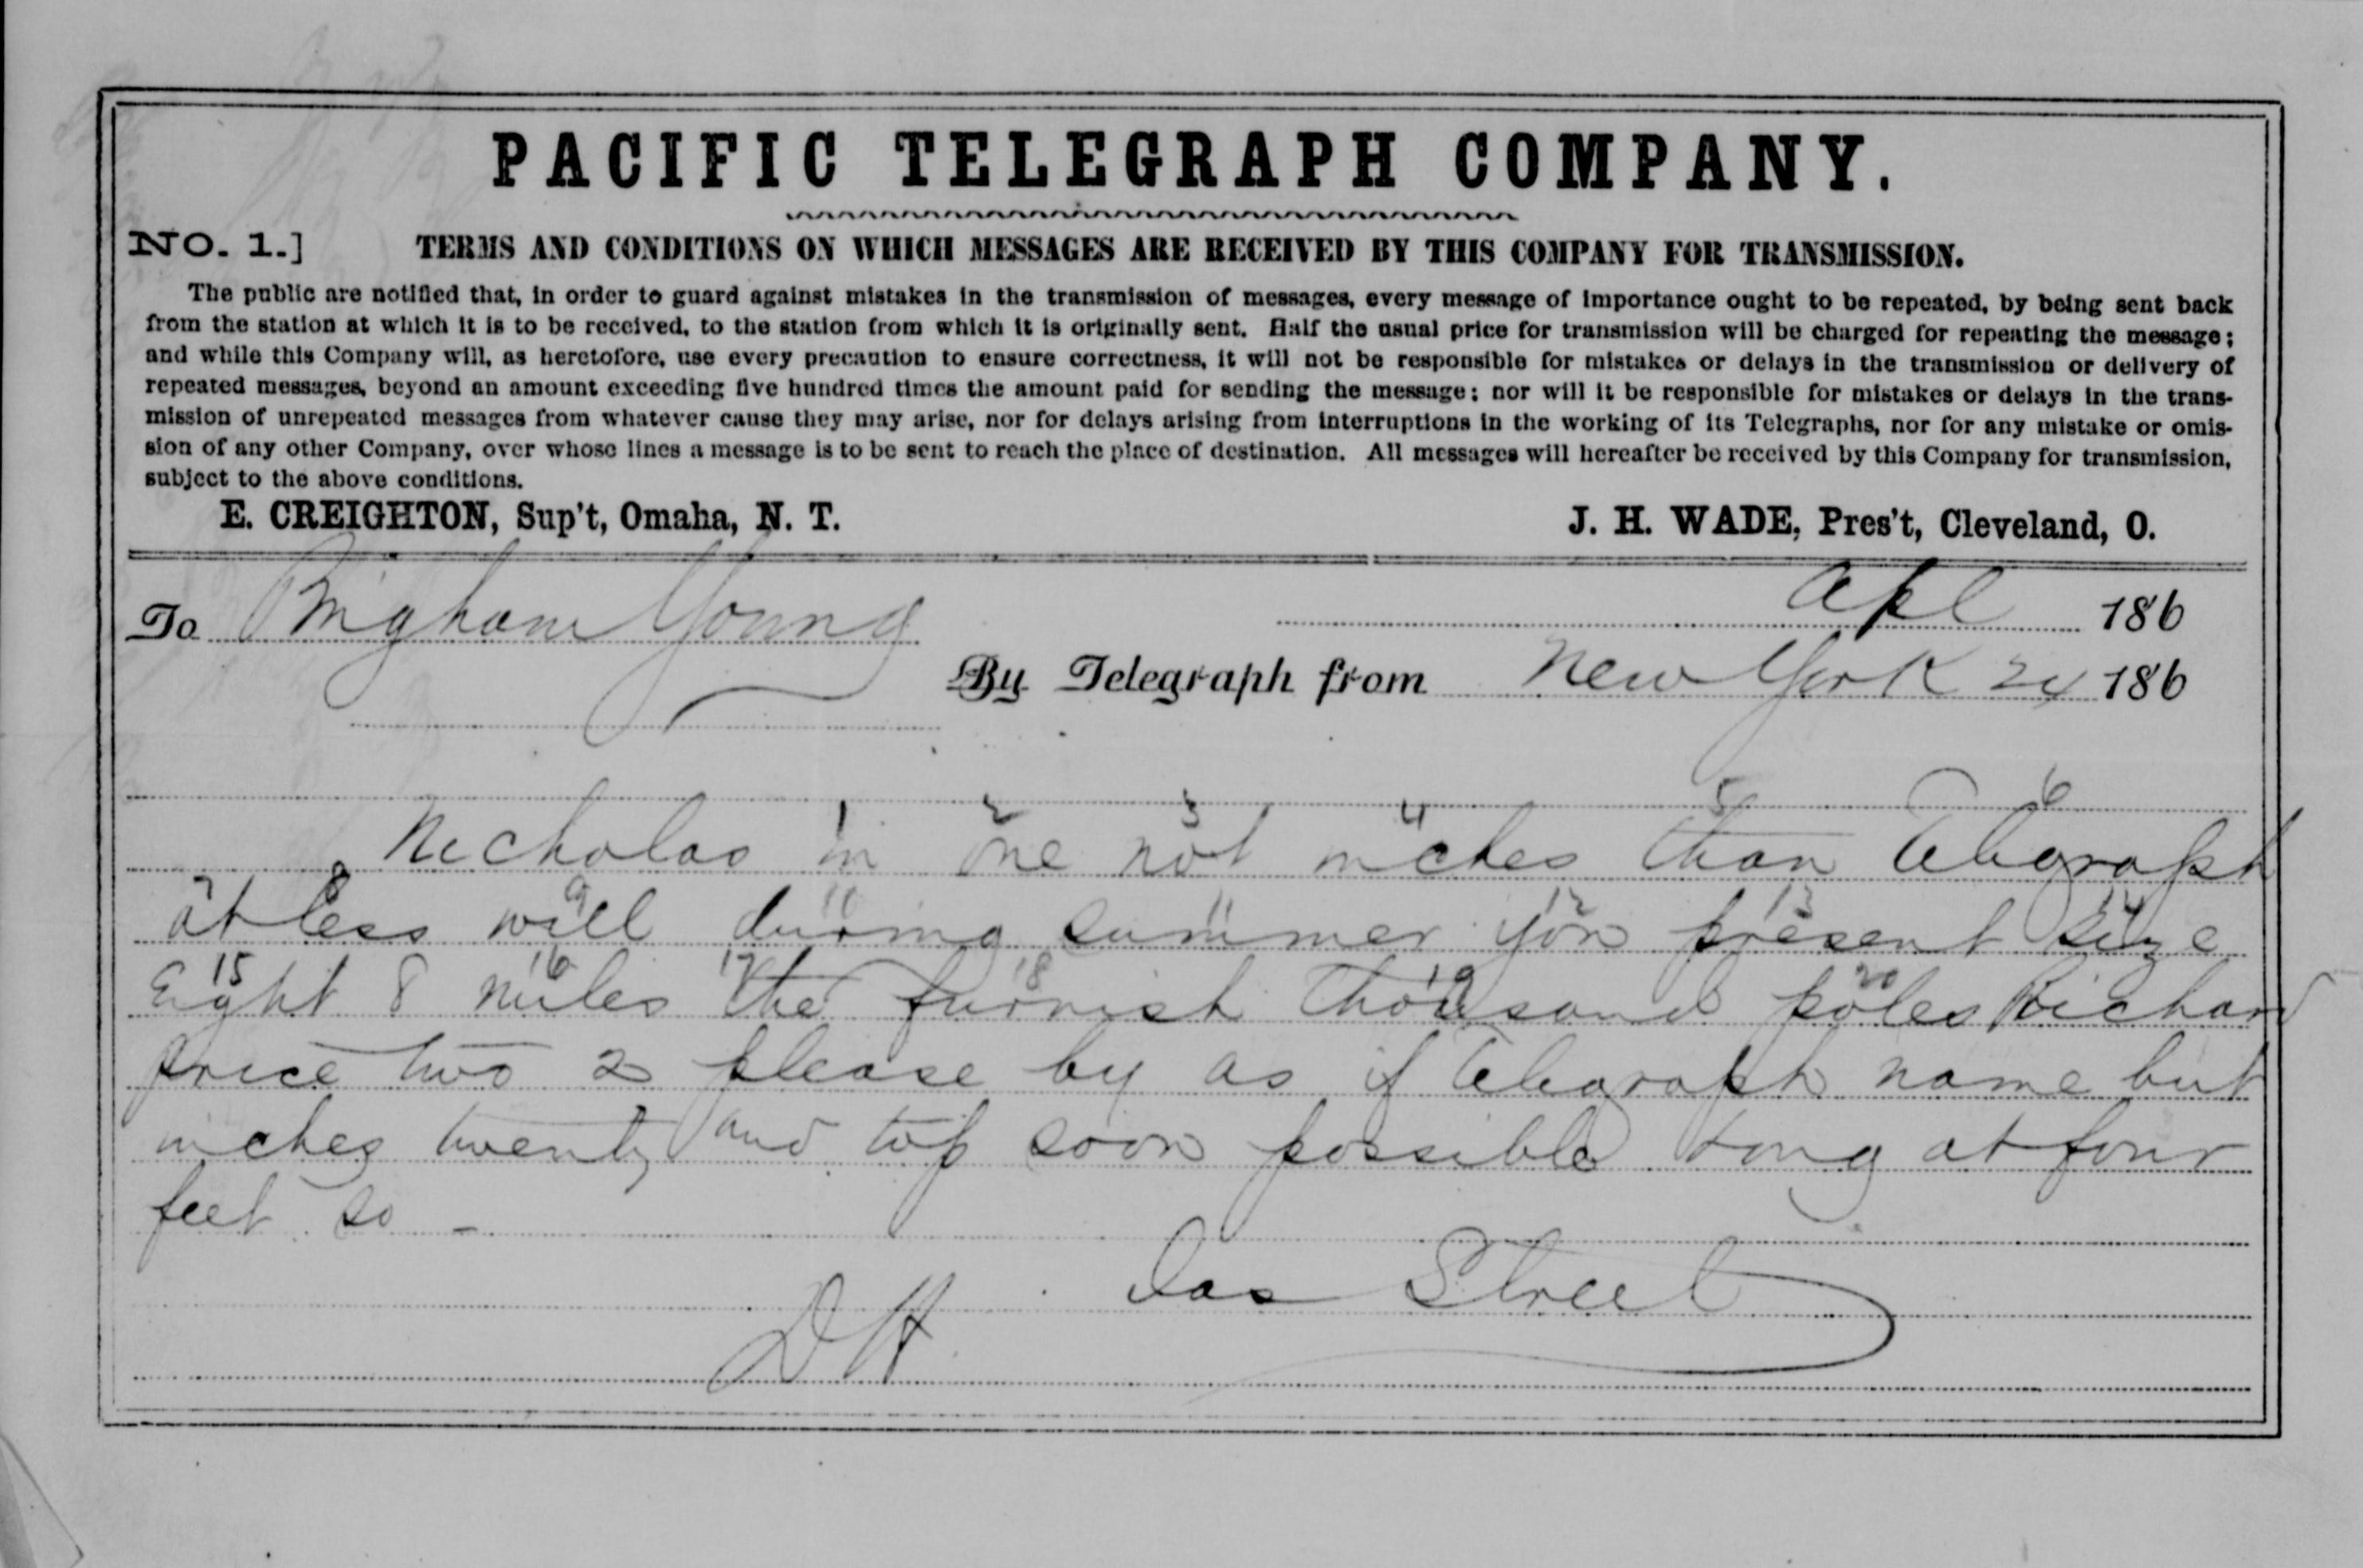 PACIFIC TELEGRAPH COMPANY.
NO. 1.] TERMS AND CONDITIONS ON WHICH MESSAGES ARE RECEIVED BY THIS COMPANY FOR TRANSMISSION.
The public are notified that, in order to guard against mistakes in the transmission of messages, every message of importance ought to be repeated, by being sent back
from the station at which it is to be received, to the station from which it is originally sent. Half the usual price for transmission will be charged for repeating the message;
and while this Company will, as heretofore, use every precaution to ensure correctness, it will not be responsible for mistakes or delays in the transmission or delivery of
repeated messages, beyond an amount exceeding five hundred times the amount paid for sending the message; nor will it be responsible for mistakes or delays in the trans-
mission of unrepeated messages from whatever cause they may arise, nor for delays arising from interruptions in the working of its Telegraphs, nor for any mistake or omis-
sion of any other Company, over whose lines a message is to be sent to reach the place of destination. All messages will hereafter be received by this Company for transmission,
subject to the above conditions.
E. CREIGHTON, Sup't, Omaha, N. T. J. H. WADE, Pres't, Cleveland, O.
Apl 186
To Brigham Young
By Telegraph from New York 24 186
1 2 3 4 5 6
Nicholas in one not inches than Telegraph
7 8 9 10 11 12 13 14
at less will during summer you present size
15 16 17 18 19 20
Eight 8 miles the furnish thousand poles Richard
price two 2 please by as if Telegraph name but
inches twenty and top soon possible long at four
feet so -
Jas Street
DH